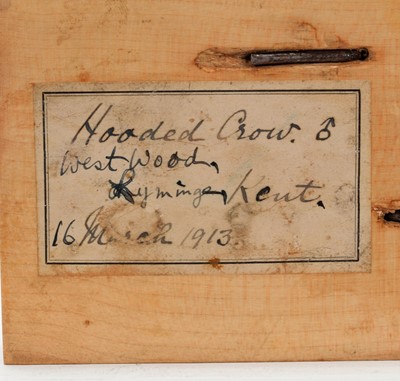 Hooded Crow. 5
West Wood,
Lyminge, Kent.
16 March 1913.